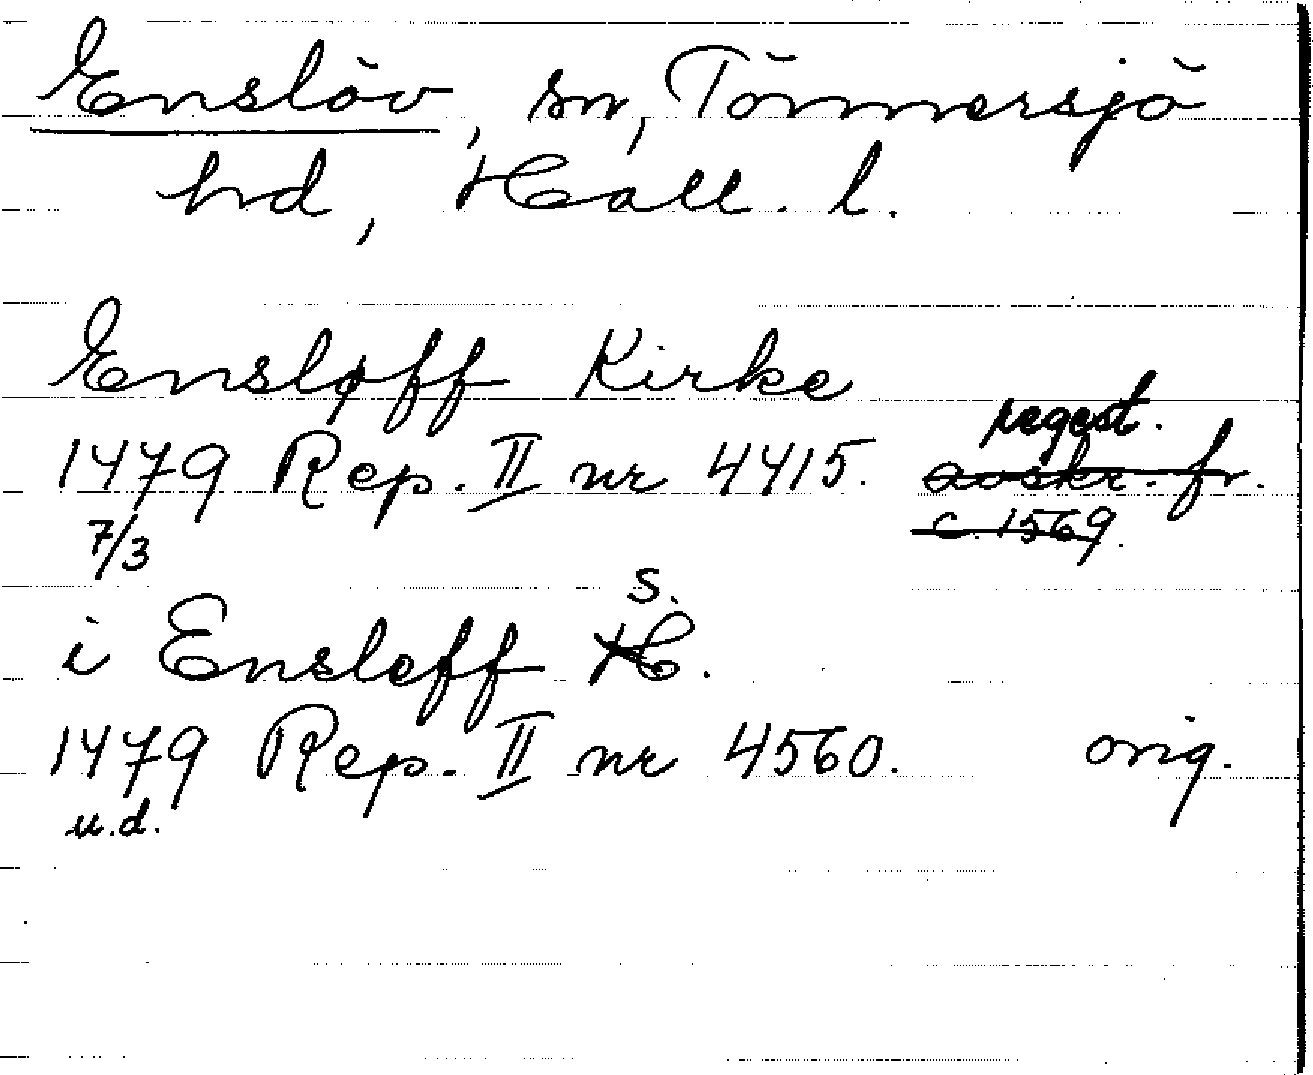 Enslöv, sn, Tönnersjö
hd, Hall. l.
Ensløff Kirke
regest.
1479 Rep. II nr 4415. avskr. fr.
7/3 c. 1569.
s.
i Ensleff H.
1479 Rep. II nr 4560. orig.
u.d.